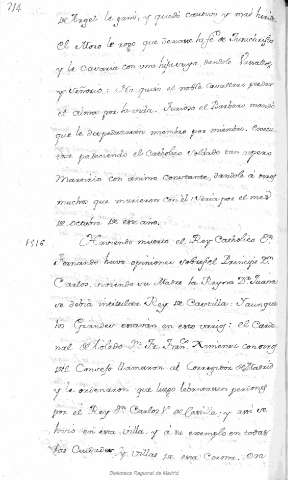 714
de Argel le ganó, y quedó cautivo y mal herido
El Moro le rogo que dexase la fe de Jesuchristo
y le casaria con una hija suya, dandole Vasallos,
y Señorio: No quiso el noble Cavallero perder
el alma por la vida. Furioso el Barbaro mandó
que le despedazasen miembro por miembro. Execu
tose padeciendo el Catholico Soldado tan aspero
Martirio con animo constante, dandole à otros
muchos que murieron con el. Seria por el mes
de octubre de este año.
1516. Haviendo muerto el Rey Catholico Dn.
Fernando huvo opiniones sobre si el Principe Dn.
Carlos, viviendo su Madre la Reyna Da. Juana
se debia intitular Rey de Castilla: y aunque
los Grandes estavan en esto varios: el Carde
nal de Toledo Dn. Fr. Franco. Ximenez con otros
del Consejo llamaron al Corregidor de Madrid
y le ordenaron que luego lebantasen pendones
por el Rey Dn. Carlos Vo. de Castilla, y assi se
hizo en esta Villa, y à su exemplo en todas
las Ciudades, y Villas de esta Corona. En
Biblioteca Regional de Madrid